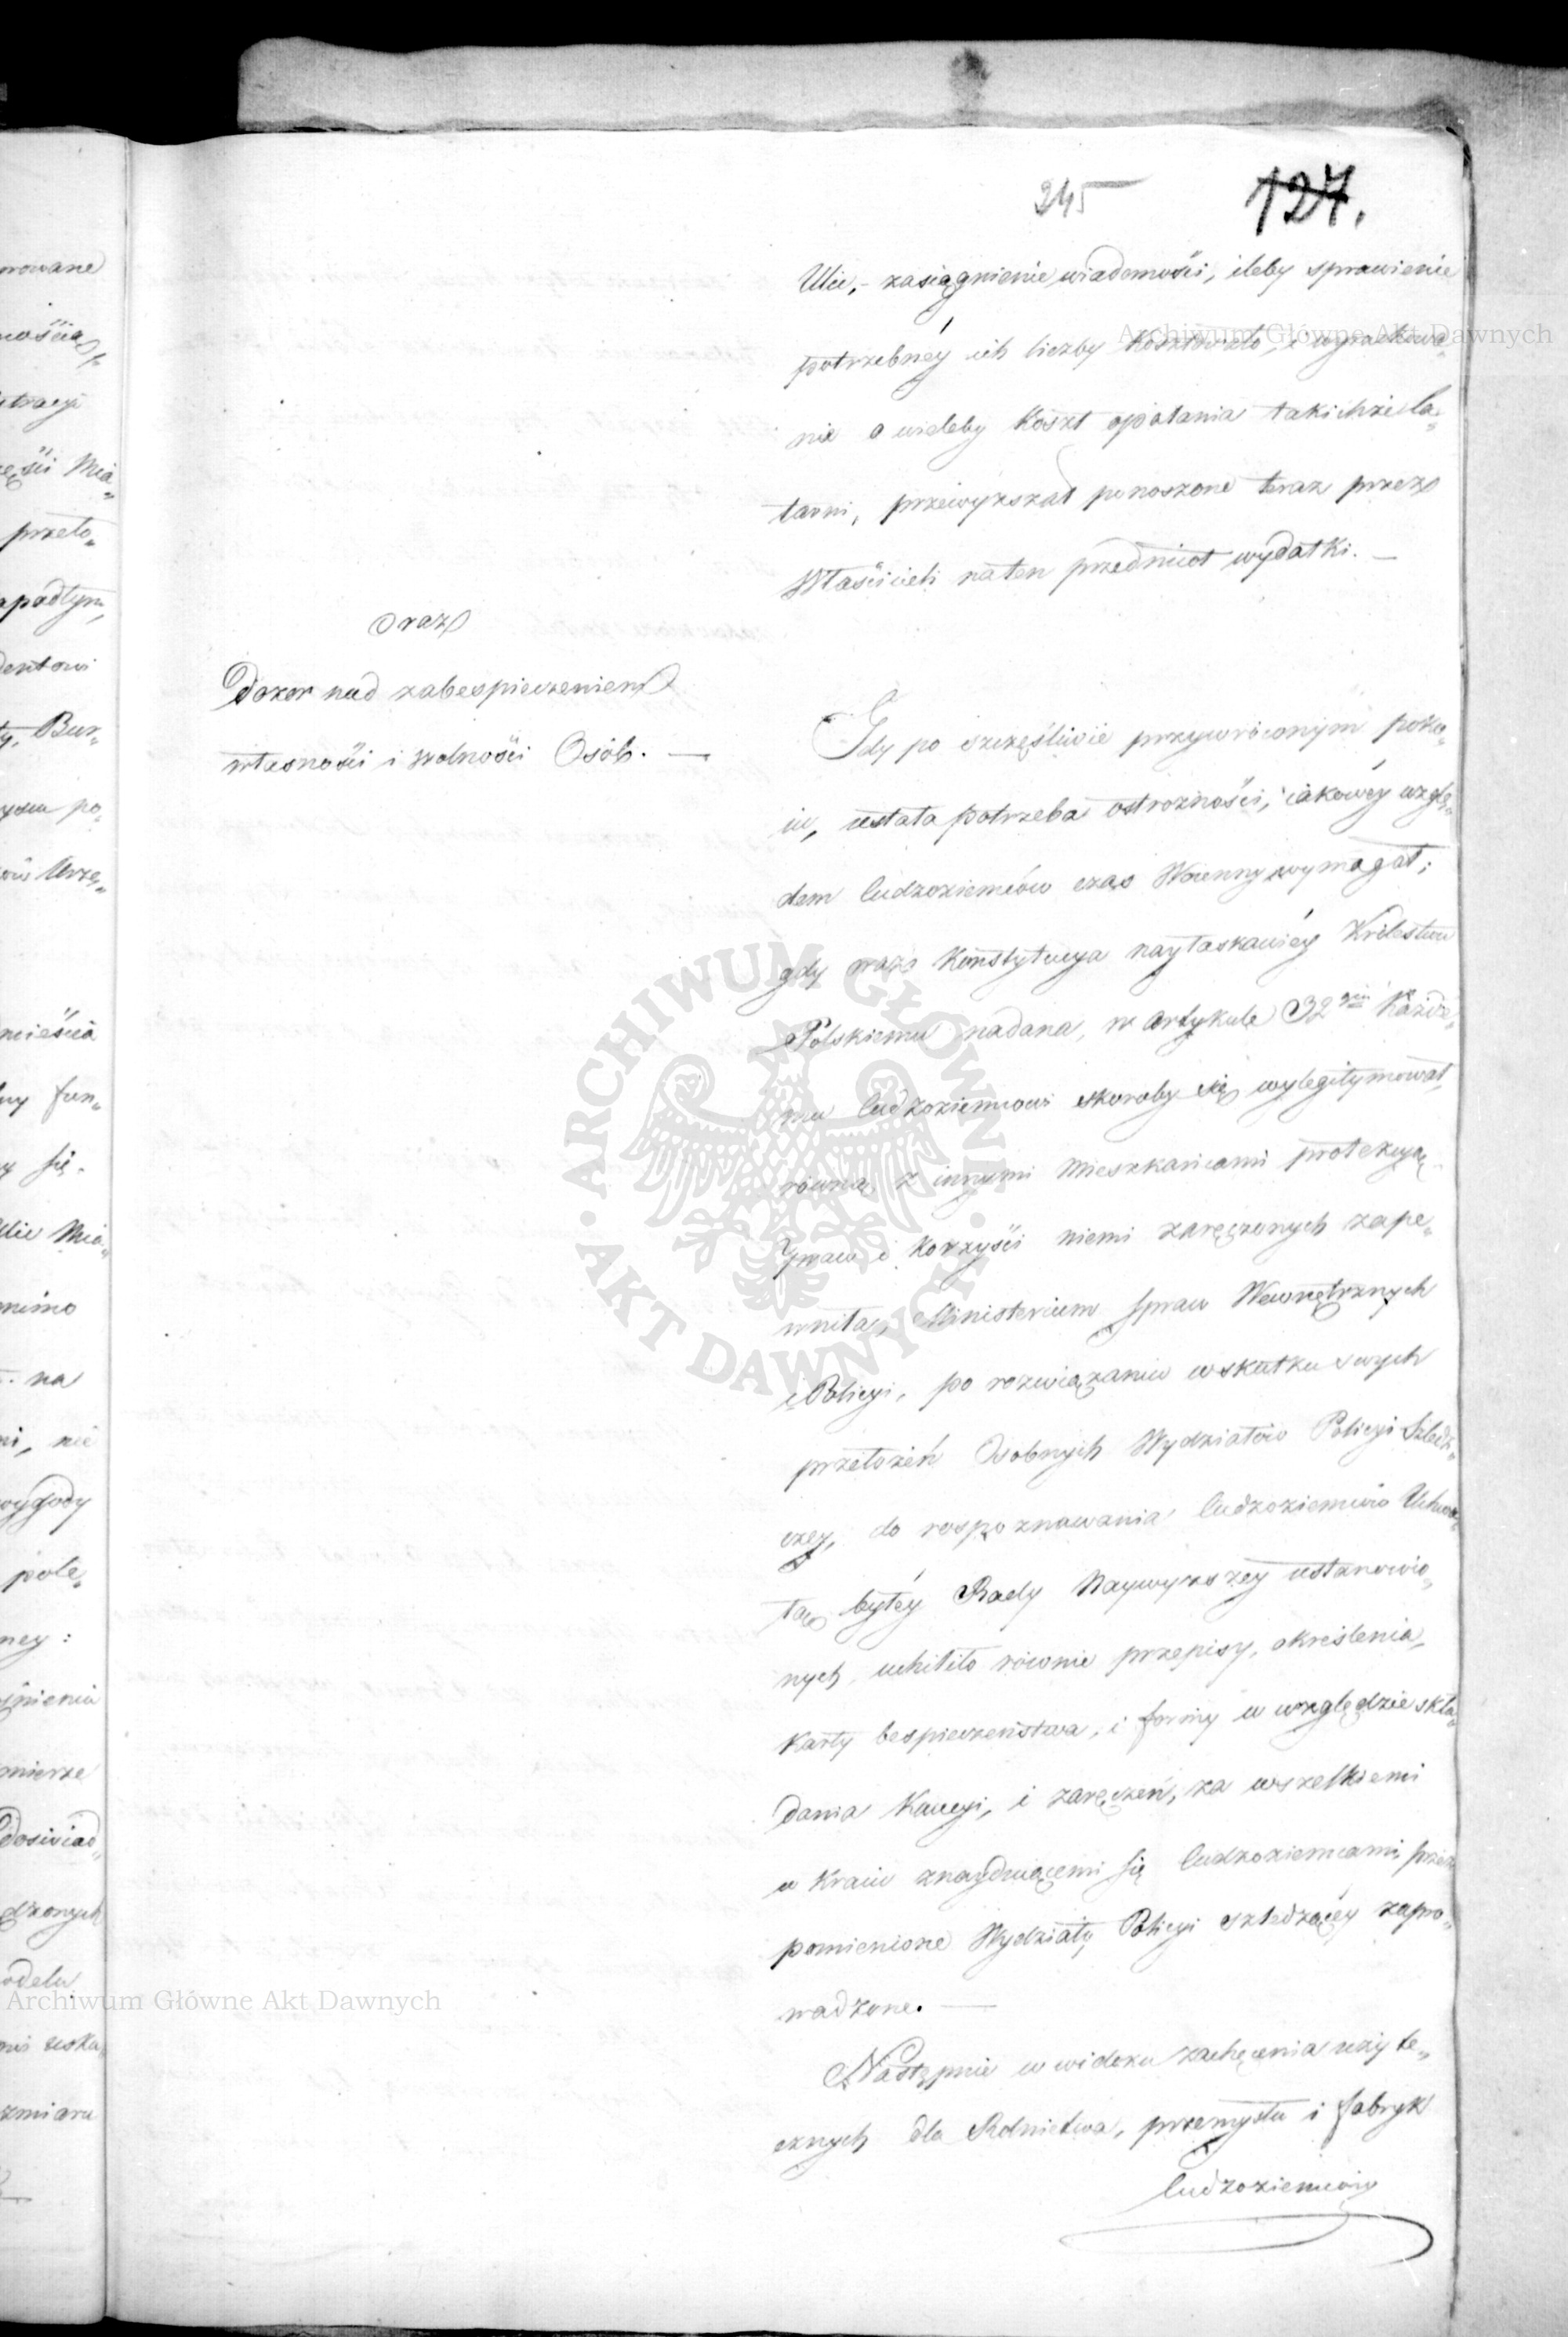 245
127.
Ulic,- zasiągnienie wiadomości, ileby sprawienie
potrzebnéy ich liczby kosztowało, i wyrachowa„
nie o wieleby koszt opałania takichże la„
tarni, przewyższał ponoszone teraz przez
Właścicieli na ten przedmiot wydatki. —
oraz
Dozor nad zabespieczeniem
własności i wolności Osób. —
Gdy po szczęśliwie przywróconym poko„
iu, ustała potrzeba ostrożności, iakowéy wzglę„
dem ludzoziemców czas Woienny wymagał;
gdy oraz Konstytucya nayłaskawiéy Królestwu
Polskiemu nadana, w artykule 32gim każde„
mu ludzoziemcowi skoroby się wylegitymował,
równą z innymi Mieszkańcami protekcyą
praw i korzyści niemi zaręczonych zape„
wniła, Ministerium Spraw Wewnętrznych
i Policyi, po rozwiązaniu w skutku swych
przełożeń Osobnych Wydziałów Policyi Szledz„
czey, do rospoznawania ludzoziemców Uchwa„
łą byłéy Rady Naywyższéy ustanowio„
nych, uchiliło równie przepisy, określenia,
karty bespieczeństwa, i formy w względzie skła„
dania Kaucyi, i zaręczeń, za wszelkiemi
w Kraiu znayduiącemi się ludzoziemcami, przez
pomienione Wydziały Policyi szledzącéy zapro„
wadzone. —
Następnie w widoku zachęcenia użyte„
cznych dla Rolnictwa, przemysłu i fabryk
ludzoziemców
rowane
nością
stracyi
zęści Mia„
przeło„
apadłym,
dentowi
Bur„
po„
Urzę„
mieścia
fun„
się.
Ulic Mia„
mimo
na
nie
wygody
pole„
ney:
śnienia
mierze
doświad„
dzonych
odelu
uska„
zmiaru
Archiwum Główne Akt Dawnych
ARCHIWUM GŁÓWNE · AKT DAWNYCH ·
Archiwum Główne Akt Dawnych